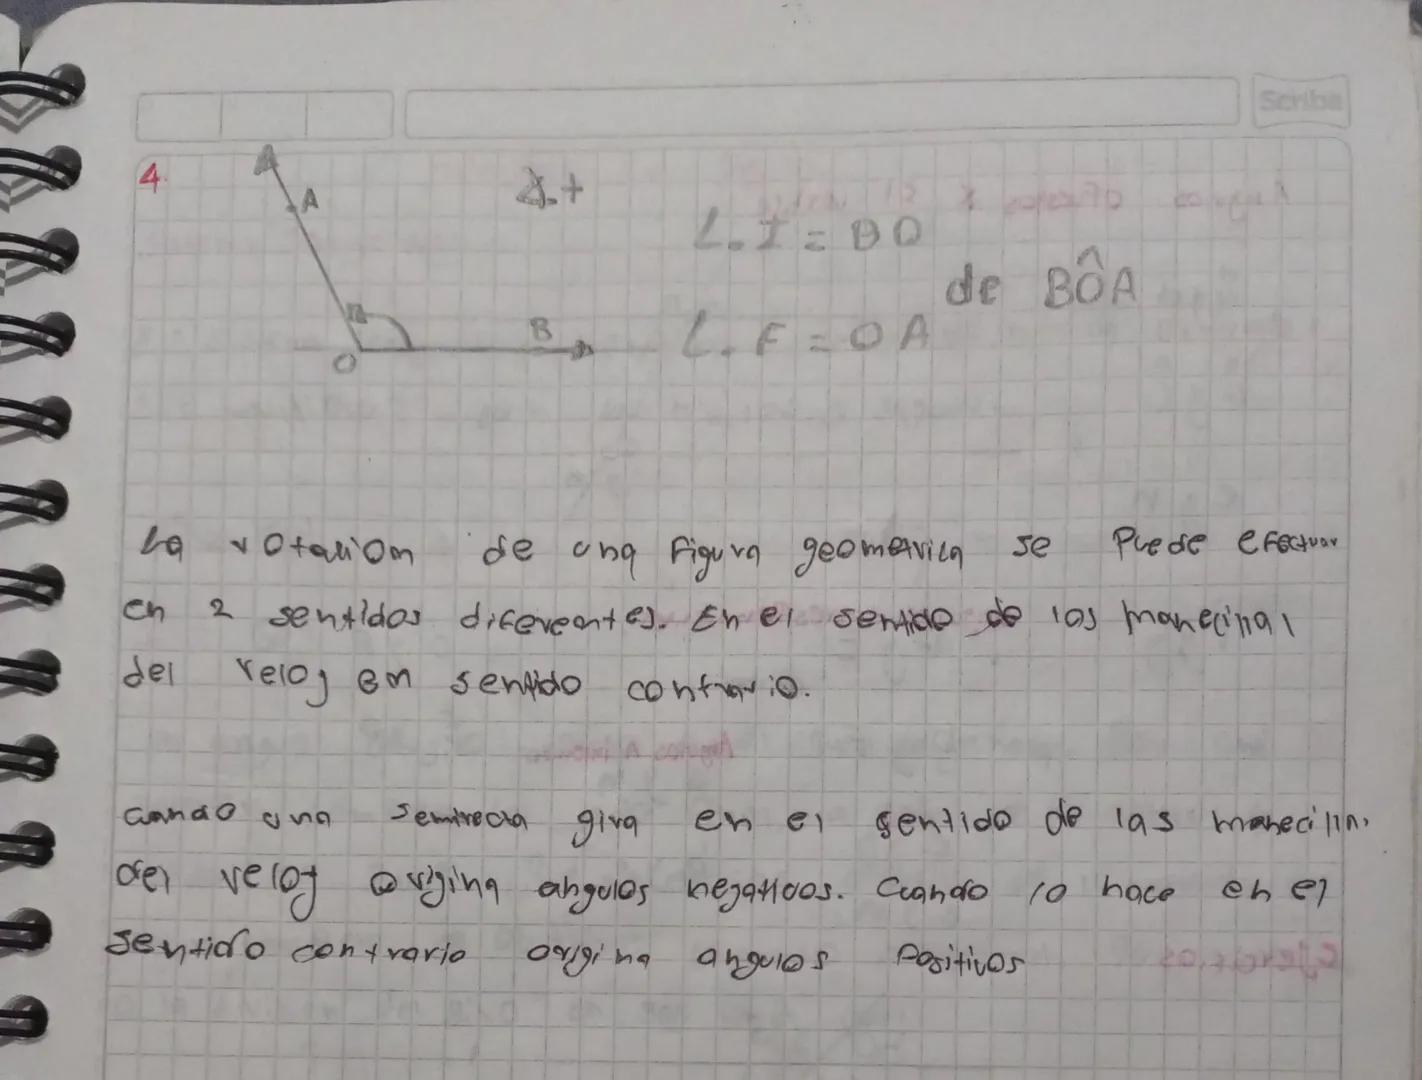 Scribe
4.
A
∡.+
L.I = BO
de BÔA
B
L.F = OA
O
La rotacion de una figura geometrica se Puede efectuar
en 2 sentidos diferentes. En el sentido de las manecillas
del reloj en sentido contrario.
cuando una semirecta gira en el sentido de las manecillas
del reloj origina angulos negativos. Cuando lo hace en el
sentido contrario origina angulos Positivos